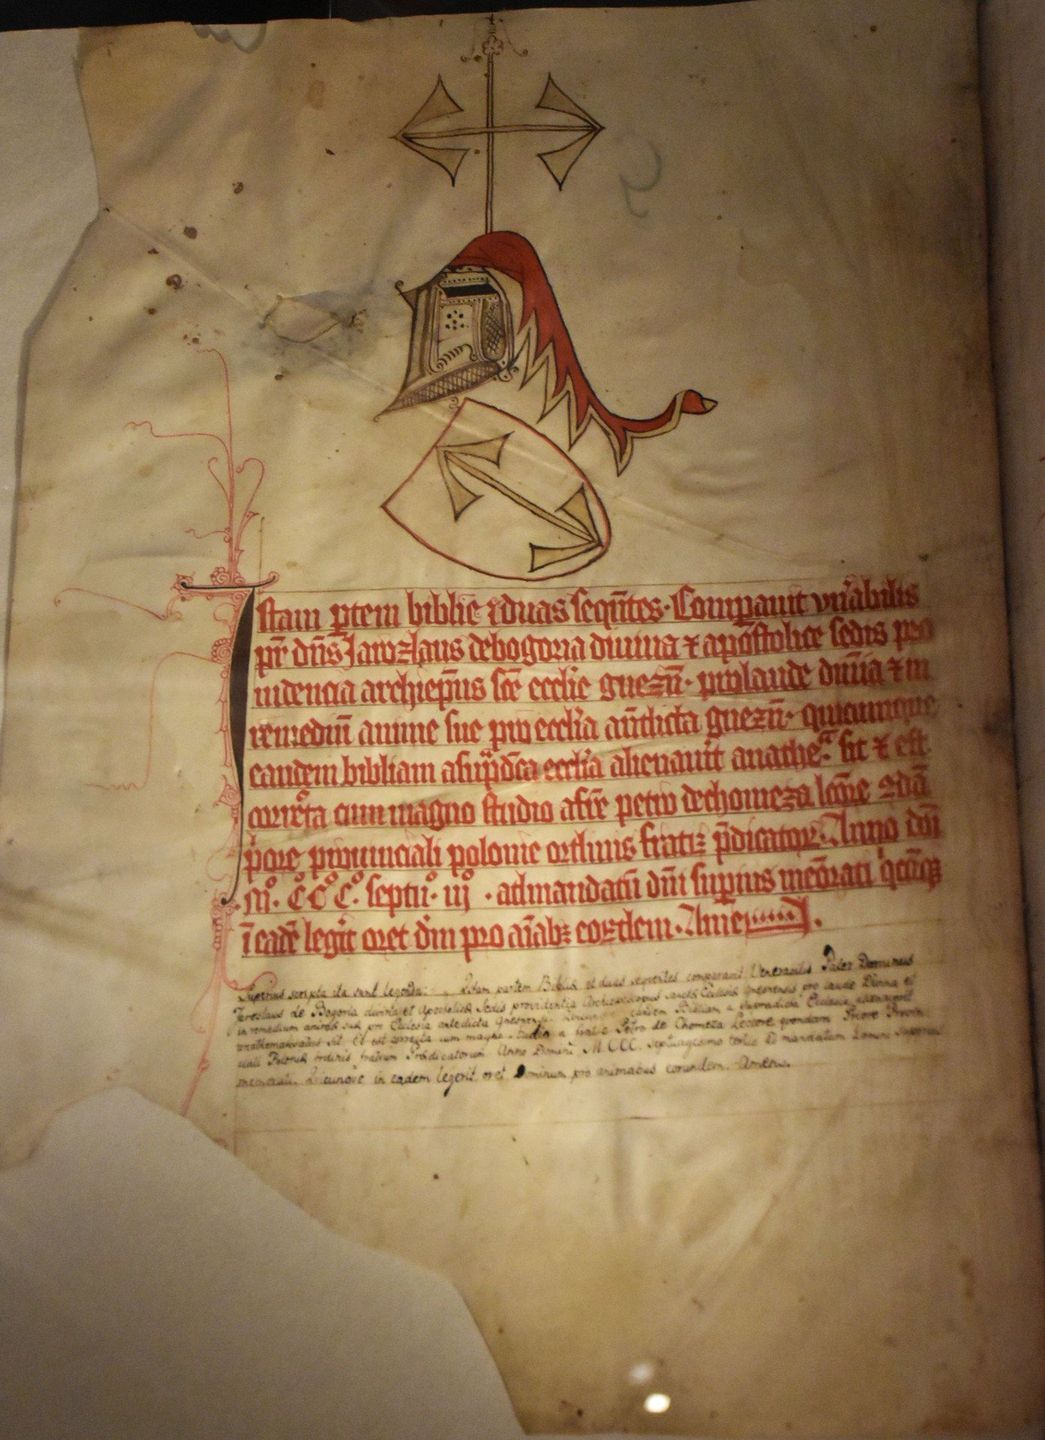 Istam p̄tem biblie ⁊ duas seqn̄tes. Comparauit vn̄abilis
pr̄ dn̄s Jarozlaus de bogoria diuina ⁊ apostolice sedis pro
uidencia archiep̄us sc̄e eccl̄ie gnezn̄. pro laude diuīa ⁊ in
remediū anime sue pro eccl̄ia an̄dicta gnezn̄. quicunque
eandem bibliam a sup̄dc̄a eccl̄ia alienauīt anatheᵃ. sit ⁊ est
correcͦta cum magno studio a fr̄e petro de chomeza
p̄ore prouinciali polonie ordinis fratꝝ p̄dicatoꝝ. Anno dn̄i
Mͦ. CͦCͦCͦ. septuͦ. iijͦ. ad mandatū dn̄i superius meōrati qͥcūqꝫ
ī eadē legīt oret dn̄m pro aīabꝫ eordem. Amen.
Superius scripta ita sunt legenda: Istam partem Bibliae et duas sequentes comparavit Venerabilis Pater Dominus
Jaroslaus de Bogoria divina et Apostolicae Sedis providentia Archiepiscopus sanctae Ecclesiae Gnesnensis pro laude Divina et
in remedium animae suae pro Ecclesia antedicta Gnesnensi. eandem Bibliam a supradicta Ecclesia alienaverit
anathematizatus sit. Et est correcta cum magno studio a fratre Petro de Chomeza Lectore quondam Priore Provin-
ciali Poloniae ordinis fratrum Praedicatorum. Anno Domini M.CCC. septuagesimo tertio ad mandatum Domini superius
memorati. Quicunque in eadem legerit, oret Dominum pro animabus eorundem. Amen.